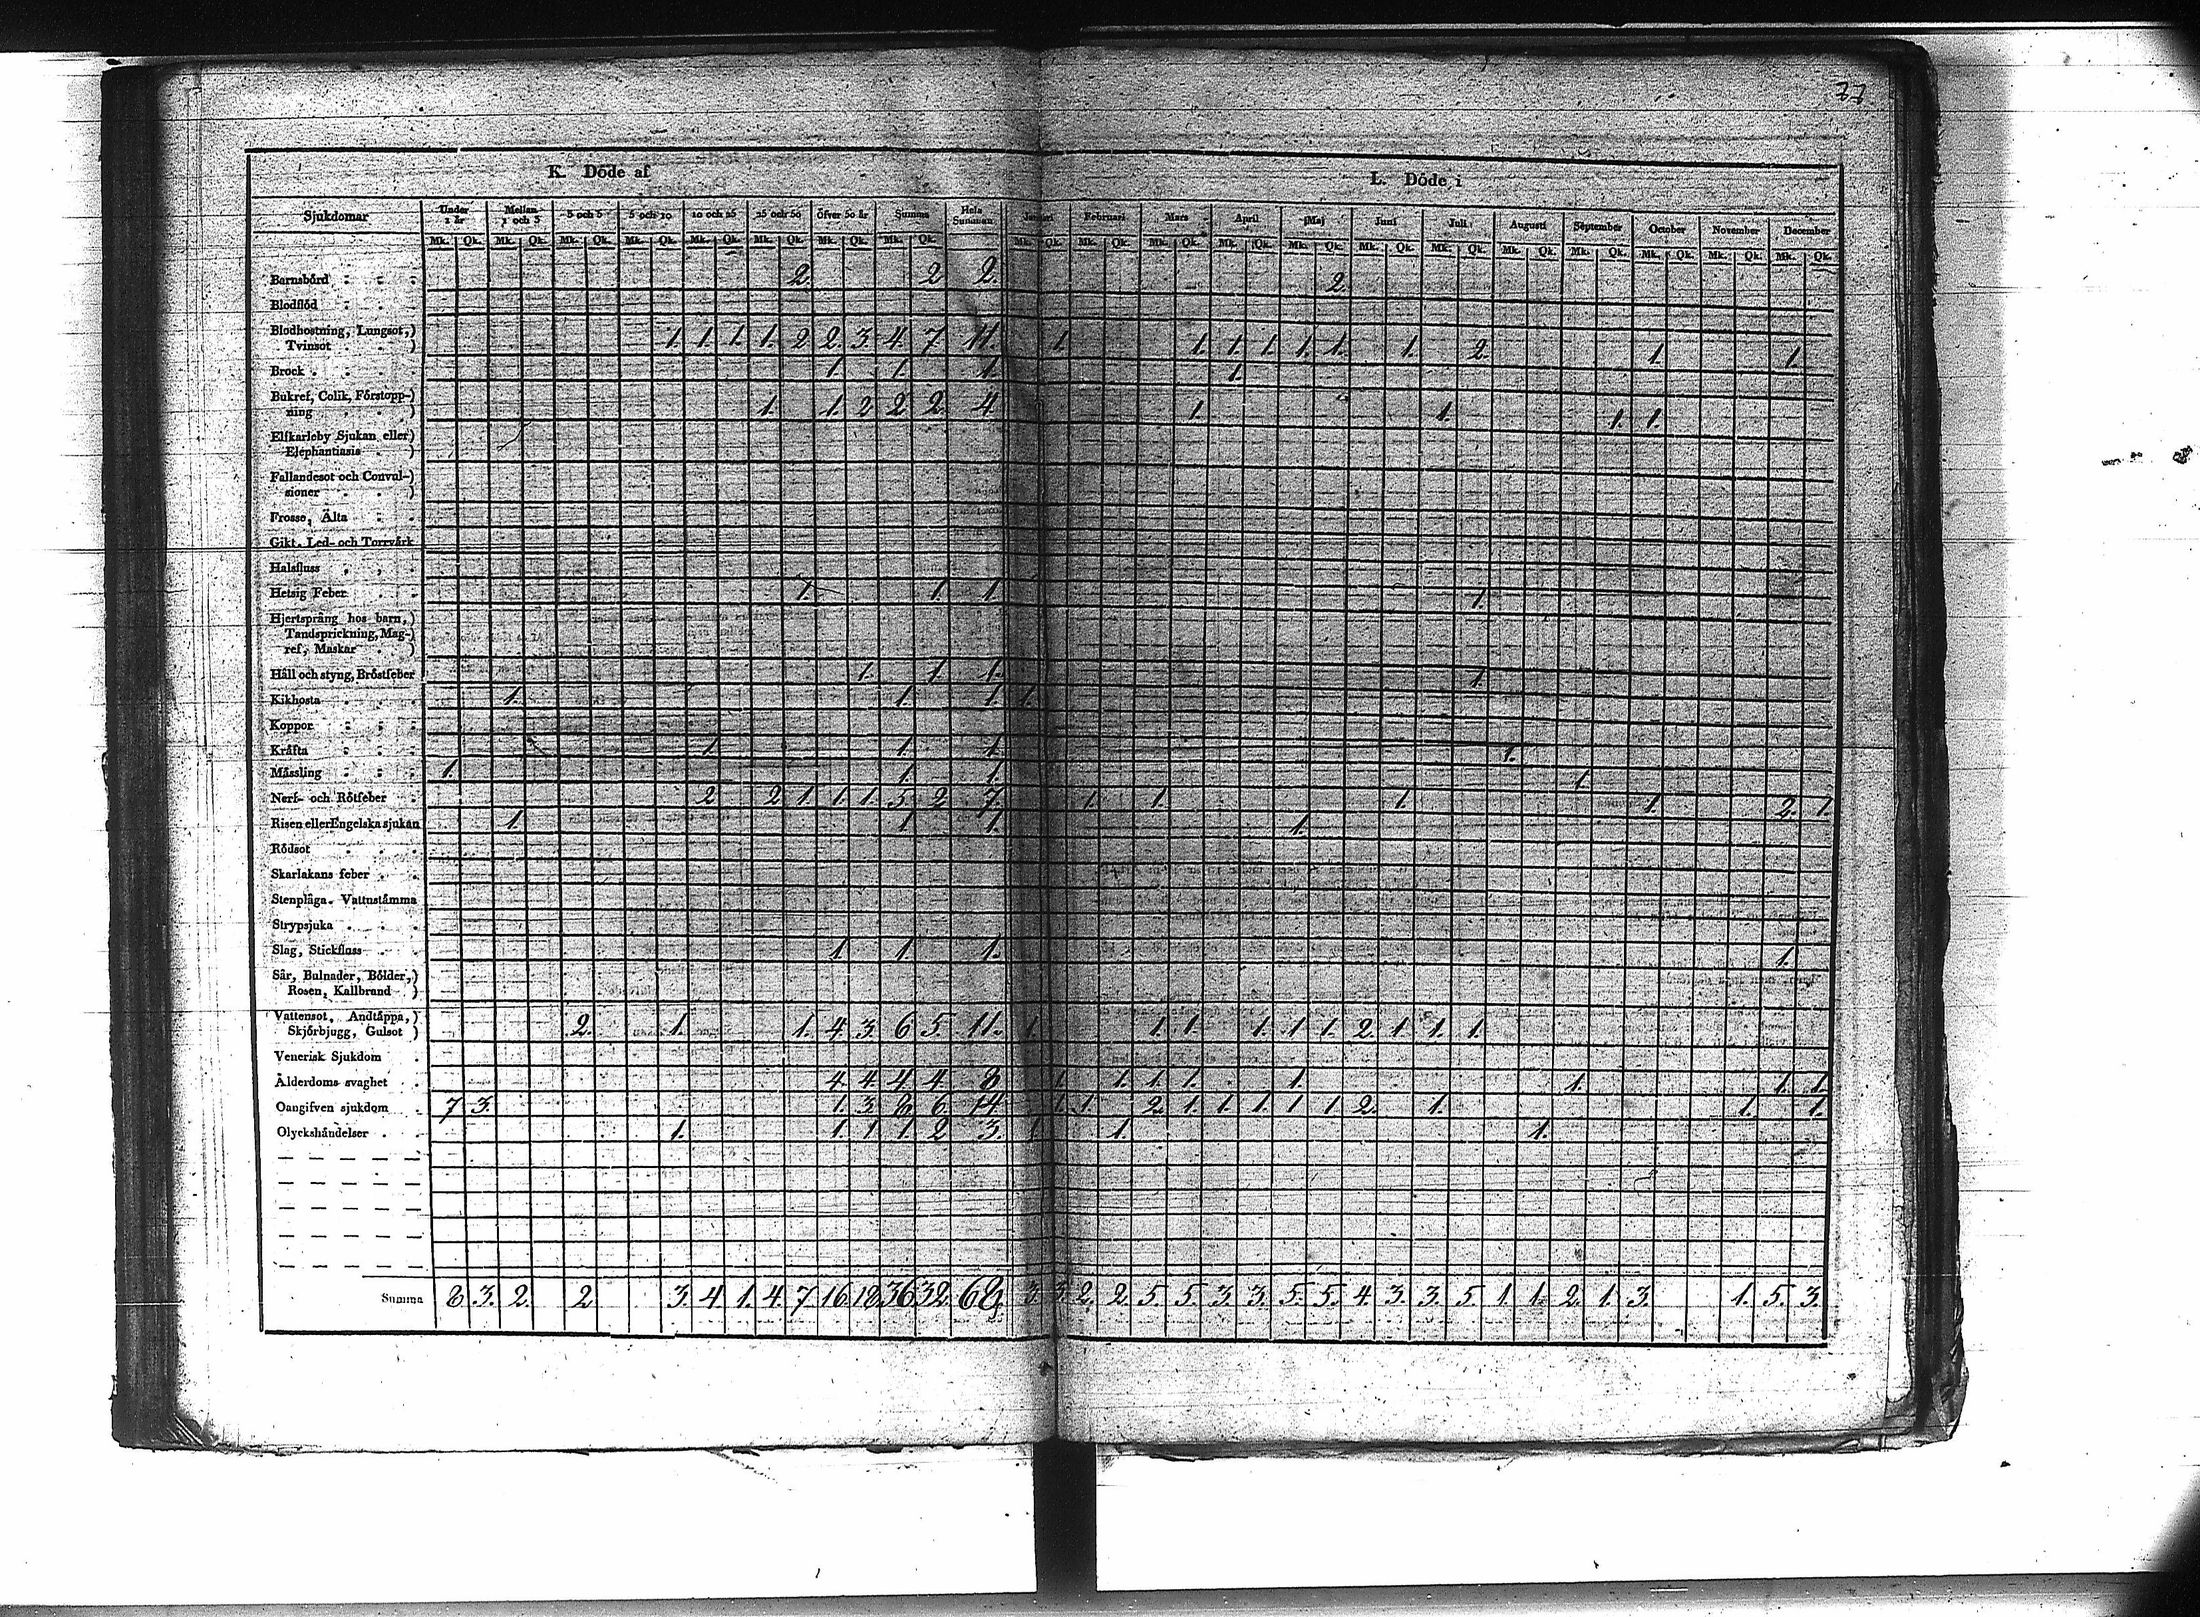 77
K. Döde af
L. Döde i
Sjukdomar Under 1 år Mellan 1 och 3 3 och 5 5 och 10 10 och 25 25 och 50 Öfver 50 år Summa Hela Summan Januari Februari Mars April Maj Juni Juli Augusti September October November December
Mk. Qk. Mk. Qk. Mk. Qk. Mk. Qk. Mk. Qk. Mk. Qk. Mk. Qk. Mk. Qk. Mk. Qk. Mk. Qk. Mk. Qk. Mk. Qk. Mk. Qk. Mk. Qk. Mk. Qk. Mk. Qk. Mk. Qk. Mk. Qk. Mk. Qk. Mk. Qk.
Barnsbörd 2. 2 2. 2.
Blodflöd
Blodhostning, Lungsot,)
Tvinsot ) 1. 1. 1. 1. 2 2. 3 4. 7 11. 1. 1. 1. 1. 1. 1. 1. 2. 1. 1.
Brock 1. 1. 1. 1.
Bukref, Colik, Förstopp-)
ning ) 1. 1. 2 2 2. 4. 1. 1. 1. 1.
Elfkarleby Sjukan eller)
Elephantiasis )
Fallandesot och Convul-)
sioner )
Frosse, Älta
Gikt. Led- och Torrvärk
Halsfluss
Hetsig Feber 1. 1. 1. 1.
Hjertsprång hos barn,)
Tandsprickning, Mag-)
ref, Maskar )
Håll och styng, Bröstfeber 1. 1. 1. 1.
Kikhosta 1. 1. 1. 1.
Koppor
Kräfta 1. 1. 1. 1.
Mässling 1. 1. 1. 1.
Nerf- och Rötfeber 2 2 1. 1. 1. 5 2 7. 1. 1. 1. 1. 2. 1.
Risen eller Engelska sjukan 1. 1. 1. 1.
Rödsot
Skarlakans feber
Stenplåga. Vattnstämma
Strypsjuka
Slag, Stickfluss 1. 1. 1. 1.
Sår, Bulnader, Bölder,)
Rosen, Kallbrand )
Vattensot, Andtäppa,)
Skjörbjugg, Gulsot ) 2. 1. 1. 4 3. 6 5. 11. 1. 1. 1. 1. 1. 1. 2. 1. 1. 1.
Venerisk Sjukdom
Ålderdoms svaghet 4. 4. 4. 4. 8 1. 1. 1. 1. 1. 1. 1. 1.
Oangifven sjukdom 7 3. 1. 3. 8. 6. 14. 1. 1. 2. 1. 1. 1. 1. 1. 2. 1. 1. 1.
Olyckshändelser 1. 1. 1. 1. 2 3. 1. 1. 1.
Summa 8 3. 2. 2 3. 4 1. 4. 7 16 18. 36 32. 68. 3. 3. 2. 2. 5. 5. 3. 3. 5. 5. 4. 3. 3. 5. 1. 1. 2. 1. 3. 1. 5. 3.